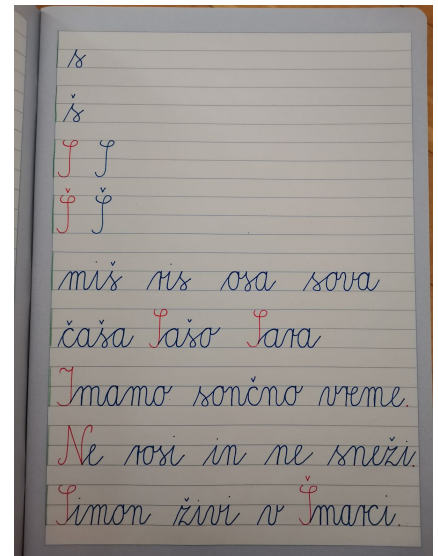 s
š
S S
Š Š
miš ris osa sova
čaša Sašo Sara
Imamo sončno vreme.
Ne rosi in ne sneži.
Simon živi v Šmarci.